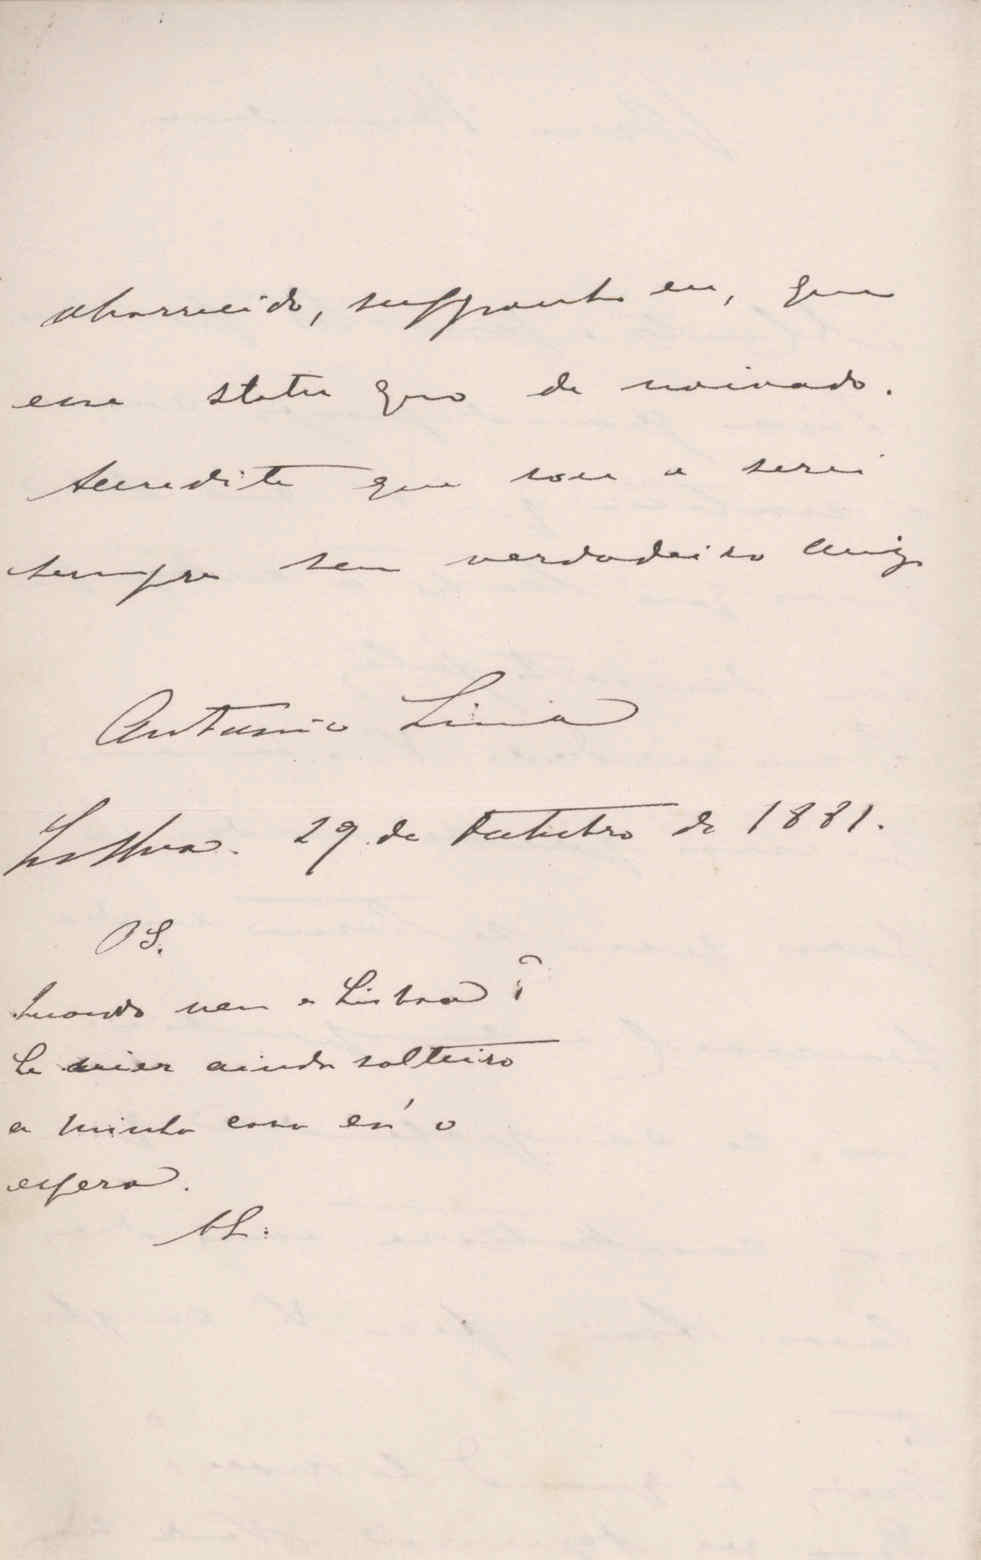 aborrecido, supponho eu, que
esse statu quo de noivado.
Acredite que sou e serei
sempre seu verdadeiro amigo
Antonio Lima
Lisboa. 29 de Outubro de 1881.
PS.
Quando vem a Lisboa?
Se vier ainda solteiro
a minha casa cá o
espera.
AL.